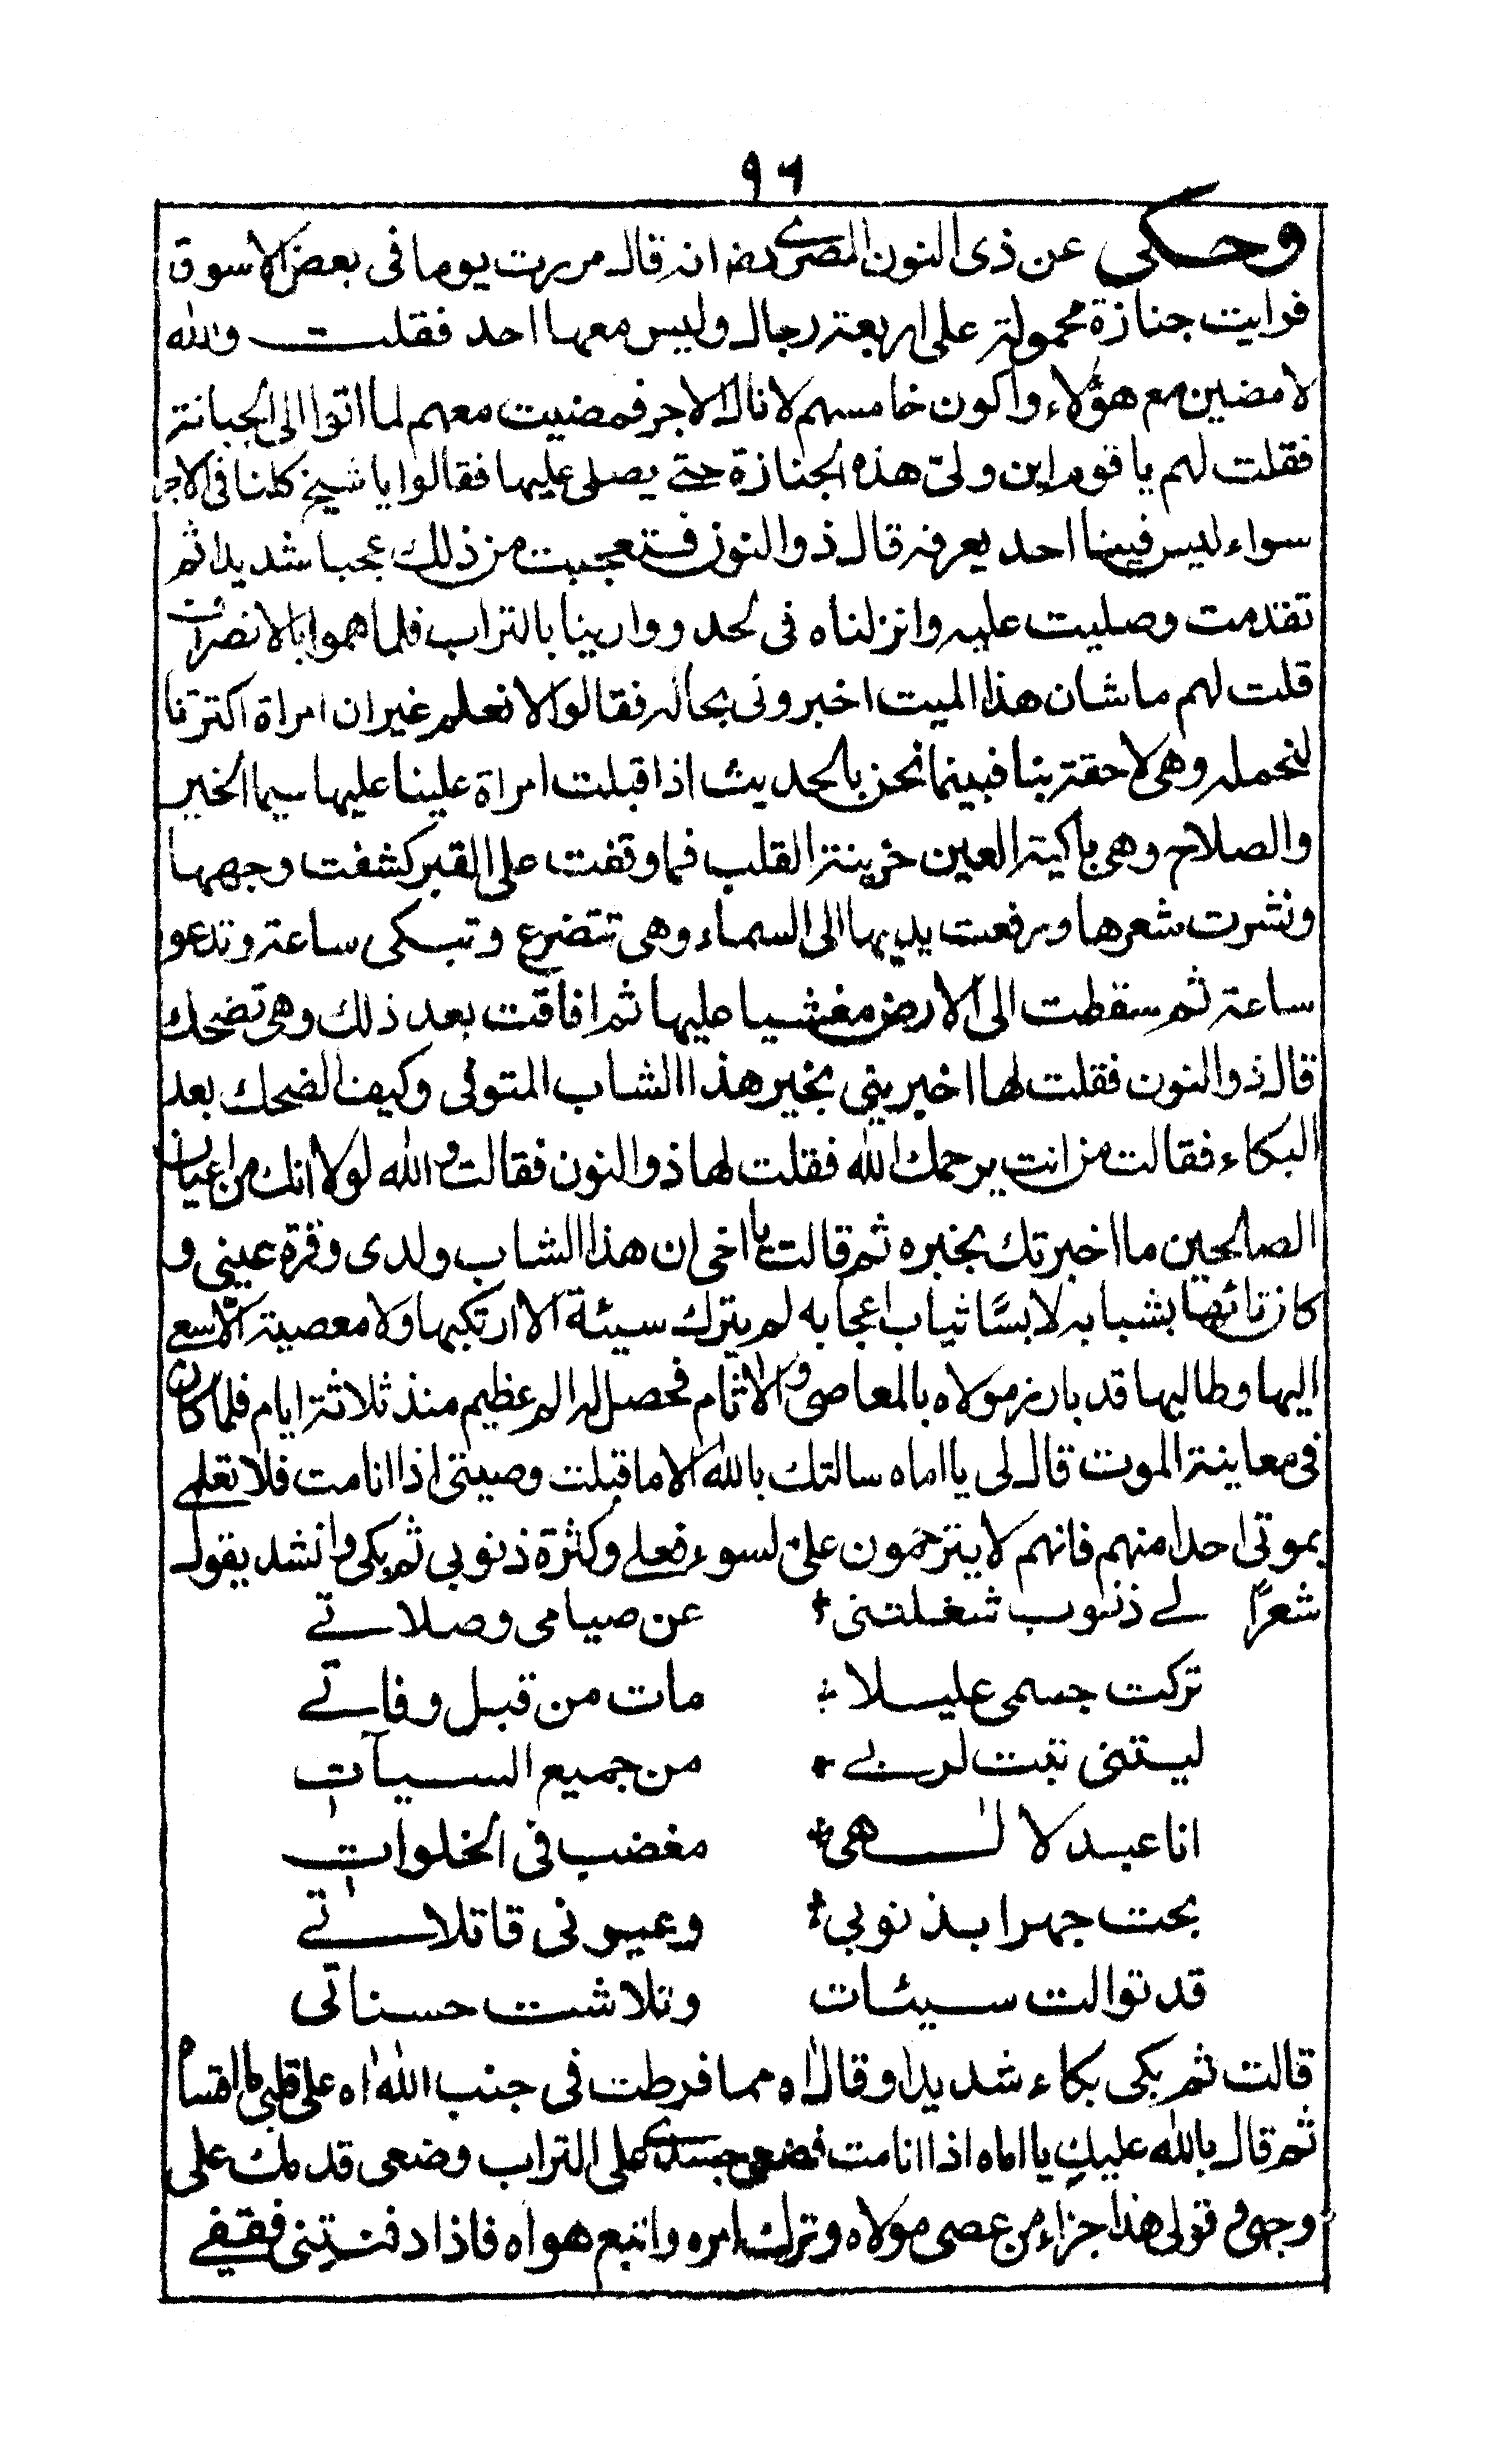 ٩٦
وحكى عن ذى النون المصرى رضه انه قال مررت يوما فى بعض الاسوق
فرايت جنازة محمولة على اربعة رجال وليس معها احد فقلت والله
لامضين مع هؤلاء واكون خامسهم لانال الاجر فمضيت معهم لما اتوا الى الجبانة
فقلت لهم يا قوم اين ولىّ هذه الجنازة حتى يصلى عليها فقالوا يا شيخ كلنا فى الاجر
سواء ليس فينا احد يعرفه قال ذو النون فتعجبت من ذلك عجبا شديدا ثم
تقدمت وصليت عليه وانزلناه فى لحد ووارينا بالتراب فلما هموا بالانصراف
قلت لهم ما شان هذا الميت اخبرونى بحاله فقالوا لا نعلم غير ان امراة اكترتنا
لنحمله وهى لاحقة بنا فبينما نحن بالحديث اذا قبلت امراة علينا عليها سيما الخير
والصلاح وهى باكية العين حزينة القلب فما وقفت على القبر كشفت وجهها
ونشرت شعرها ورفعت يديها الى السماء وهى تتضرع وتبكى ساعة وتدعو
ساعة ثم سقطت الى الارض مغشيا عليها ثم افاقت بعد ذلك وهى تضحك
قال ذو النون فقلت لها اخبرينى بخبر هذا الشاب المتوفى وكيف الضحك بعد
البكاء فقالت من انت يرحمك الله فقلت لها ذو النون فقالت والله لولا انك من اعيان
الصالحين ما اخبرتك بخبره ثم قالت يا اخى ان هذا الشاب ولدى وقرة عينى و
كان تائها بشبابه لابسًا ثياب اعجابه لم يترك سيئة الا ارتكبها ولا معصية الّا سعى
اليها وطالبها قد بارز مولاه بالمعاصى والاثام فحصل له الم عظيم منذ ثلاثة ايام فلما كان
فى معاينة الموت قال لى يا اماه سالتك بالله الا ما قبلت وصيتى اذا انا مت فلا تعلمى
بموتى احدا منهم فانهم لا يترحمون علىّ لسوء فعلى وكثرة ذنوبى ثم بكى وانشد يقول
شعرًا لى ذنوب شغلتنى عن صيامى وصلاتى
تركت جسمى عليلا مات من قبل وفاتى
ليتنى تبت لربى من جميع السيآت
انا عبد لا لهى مغضب فى الخلوات
بحت جهرا بذنوبى وعيونى قاتلاتى
قد توالت سيئات وتلاشت حسناتى
قالت ثم بكى بكاء شديدا وقال اه مما فرطت فى جنب الله اه على قلبى ما اقساه
ثم قال بالله عليكِ يا اماه اذا انا مت فضعى خدى على التراب وضعى قدمك على
وجهى وقولى هذا جزاء من عصى مولاه وترك امره واتبع هواه فاذا دفنتِنى فقفى